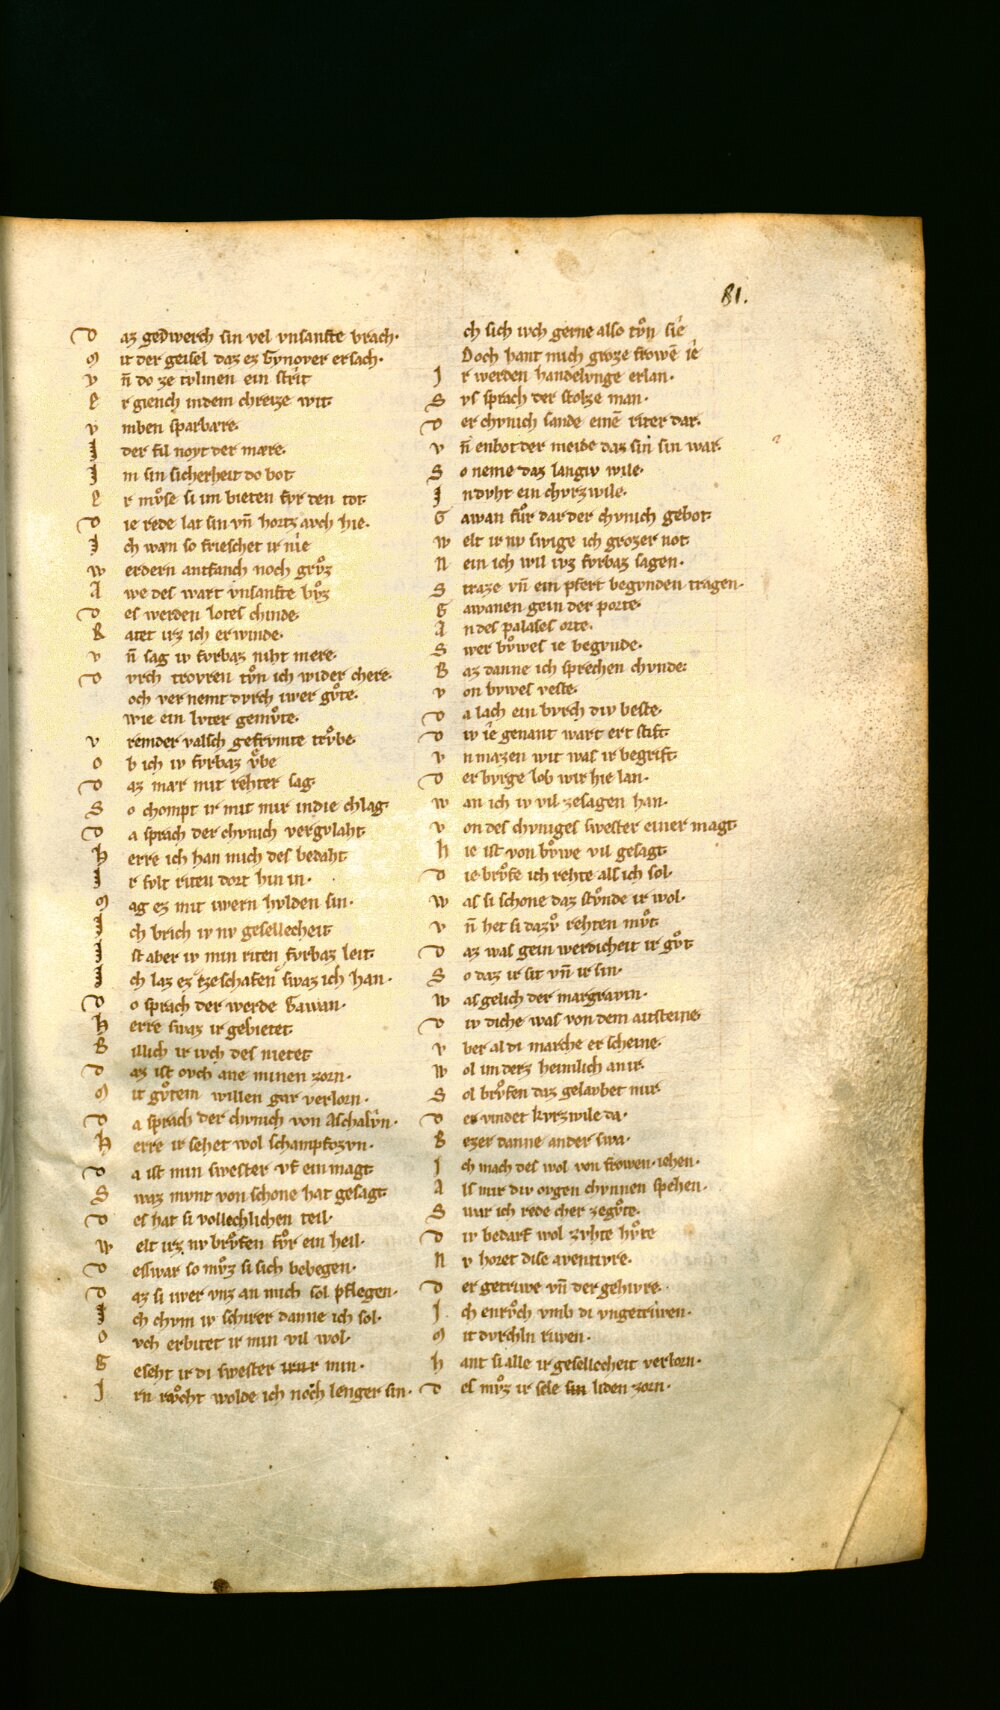 81.
D az gedwerch sin vel vnsanfte brach·
M it der geisel daz ez Gynover ersach·
V n̄ do ze tvlmen ein strît
E r giench indem chreize wit·
V mben sparbære·
I der fil noyt der mære·
I m sin sicherheit do bot
E r mvͦse si im bieten fvr den tot·
D ie rede lat sin vn̄ hortz avch hie·
I ch wæn so frieschet ir nîe
W erdern antfanch noch grvͦz
A we des wart vnsanfte bvͦz
D es werden lotes chinde·
R atet irz ich erwinde·
V n̄ sag iv fvrbaz niht mere·
D vrch trovren tvͦn ich wider chere·
och ver nemt dvrch iwer gvͦte·
wie ein lvter gemvͦte·
V remder valsch gefrvmte trvͦbe·
O b ich iv fvrbaz vͦbe
D az mær mit rehter sag·
S o chompt ir mit mir indie chlag·
D a sprach der chvnich vergvlaht·
H erre ich han mich des bedaht·
I r svlt riten dort hin in·
M ag ez mit iwern hvlden sin·
I ch brich iv nv gesellecheit·
I st aber iv min riten fvrbaz leit·
I ch laz ez zeschafen swaz ich han·
D o sprach der werde Gawan·
H erre swaz ir gebietet·
B illich ir ivch des nietet
D az ist ovch ane minen zorn·
M it gvͦtem willen gar verlorn·
D a sprach der chvnich von Aschalvn·
H erre ir sehet wol schampfozvn·
D a ist min swester vf ein magt·
S waz mvnt von schone hat gesagt·
D es hat si vollechlichen teil·
W elt irz nv brvͦfen fvͦr ein heil·
D eswar so mvͦz si sich bebegen·
D az si iwer vnz an mich sol pflegen·
I ch chvm iv schirer danne ich sol·
O vch erbitet ir min vil wol·
G eseht ir di swester min·
I rn rvͦcht wolde ich noch lenger sin·
ch sich ivch gerne also tvͦn sîe
Doch hant mich groze frowē îe
I r werden handelvnge erlan·
S vs sprach der stolze man·
D er chvnich sande einē riter dar·
V n̄ enbot der meide daz sin sin war·
S o neme daz langiv wile·
I n dvht ein chvrzwile·
G awan fvͦr dar der chvnich gebot·
W elt ir nv swige ich grozer not·
N ein ich wil ivz fvrbaz sagen·
S traze vn̄ ein pfert begvnden tragen·
G awanen gein der porte·
A n des palases orte·
S wer bvͦwes ie begvnde·
B az danne ich sprechen chvnde·
V on bvwes veste·
D a lach ein bvrch div beste·
D iv îe genant wart ert stift·
V n mazen wit was ir begrift·
D er bvrge lob wir hie lan·
W an ich iv vil zesagen han·
V on des chvniges swester einer magt·
H ie ist von bvͦwe vil gesagt·
D ie brvͦfe ich rehte als ich sol·
W as si schone daz stvͦnde ir wol·
V n̄ het si dazvͦ rehten mvͦt·
D az was gein werdicheit ir gvͦt·
S o daz ir sit vn̄ ir sin·
W as gelich der margravin·
D iv diche was von dem aitsteine·
V ber al di marche erscheine·
W ol im derz heinlich an ir·
S ol brvͦfen daz gelavbet mir
D er vindet kvrzwile da·
B ezer danne ander swa·
I ch mach des wol von frowen iehen·
A ls mir div ovgen chvnnen spehen·
S war ich rede cher zegvͦte·
D iv bedarf wol zvhte hvͦte
N v horet dise aventivre·
D er getriwe vn̄ der gehivre·
I ch enrvͦch vmb di vngetriwen·
M it dvrchln riwen·
H ant si alle ir gesellecheit verlorn·
D es mvͦz ir sele liden zorn·